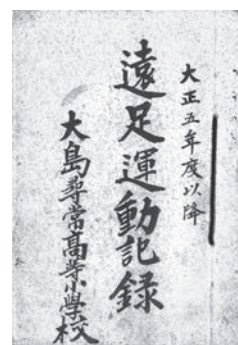 大正五年度以降
遠足運動記録
大島尋常高等小學校